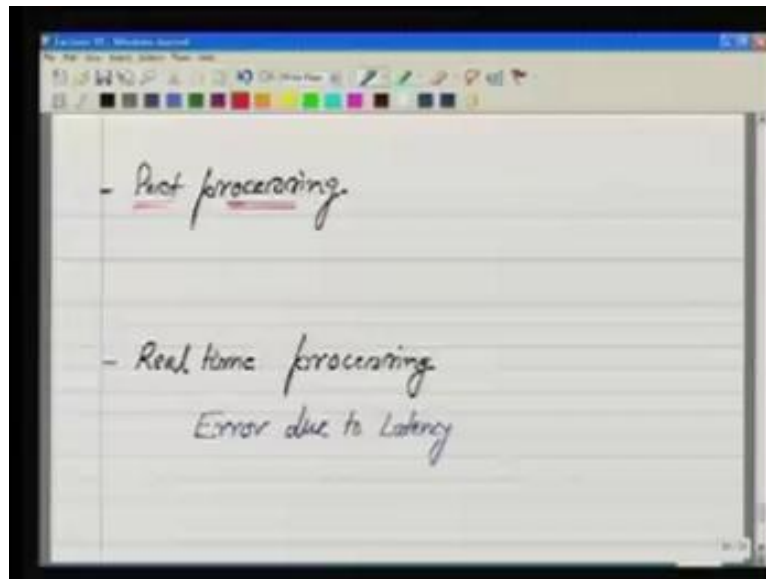 - Post processing.
- Real time processing
Error due to Latency